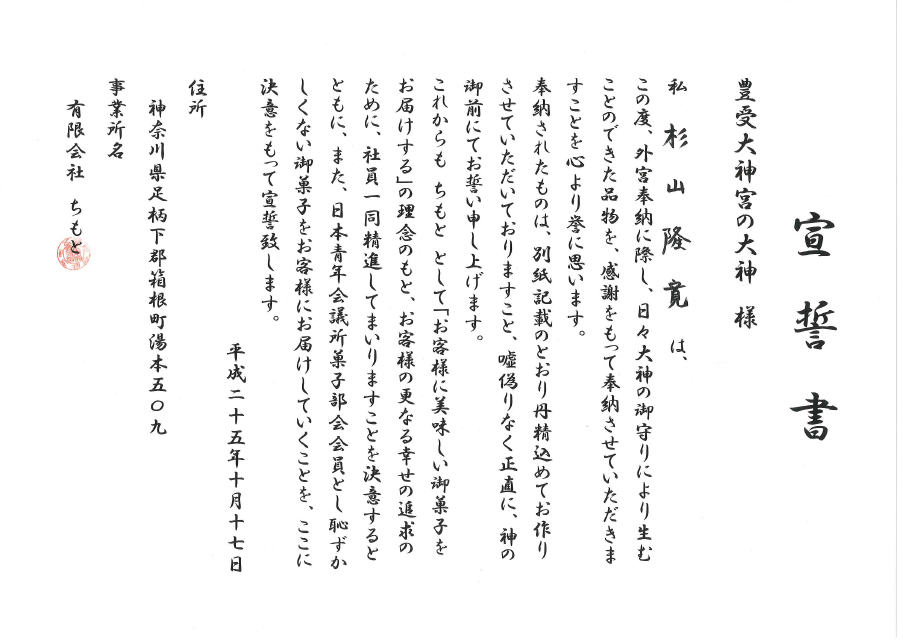 宣誓書
豊受大神宮の大神 様
私 杉山隆寛 は、
この度、外宮奉納に際し、日々大神の御守りにより生む
ことのできた品物を、感謝をもって奉納させていただきま
すことを心より誉に思います。
奉納されたものは、別紙記載のとおり丹精込めてお作り
させていただいておりますこと、嘘偽りなく正直に、神の
御前にてお誓い申し上げます。
これからも ちもと として「お客様に美味しい御菓子を
お届けする」の理念のもと、お客様の更なる幸せの追求の
ために、社員一同精進してまいりますことを決意すると
ともに、また、日本青年会議所菓子部会会員とし恥ずか
しくない御菓子をお客様にお届けしていくことを、ここに
決意をもって宣誓致します。
平成二十五年十月十七日
住所
神奈川県足柄下郡箱根町湯本五〇九
事業所名
有限会社 ちもと